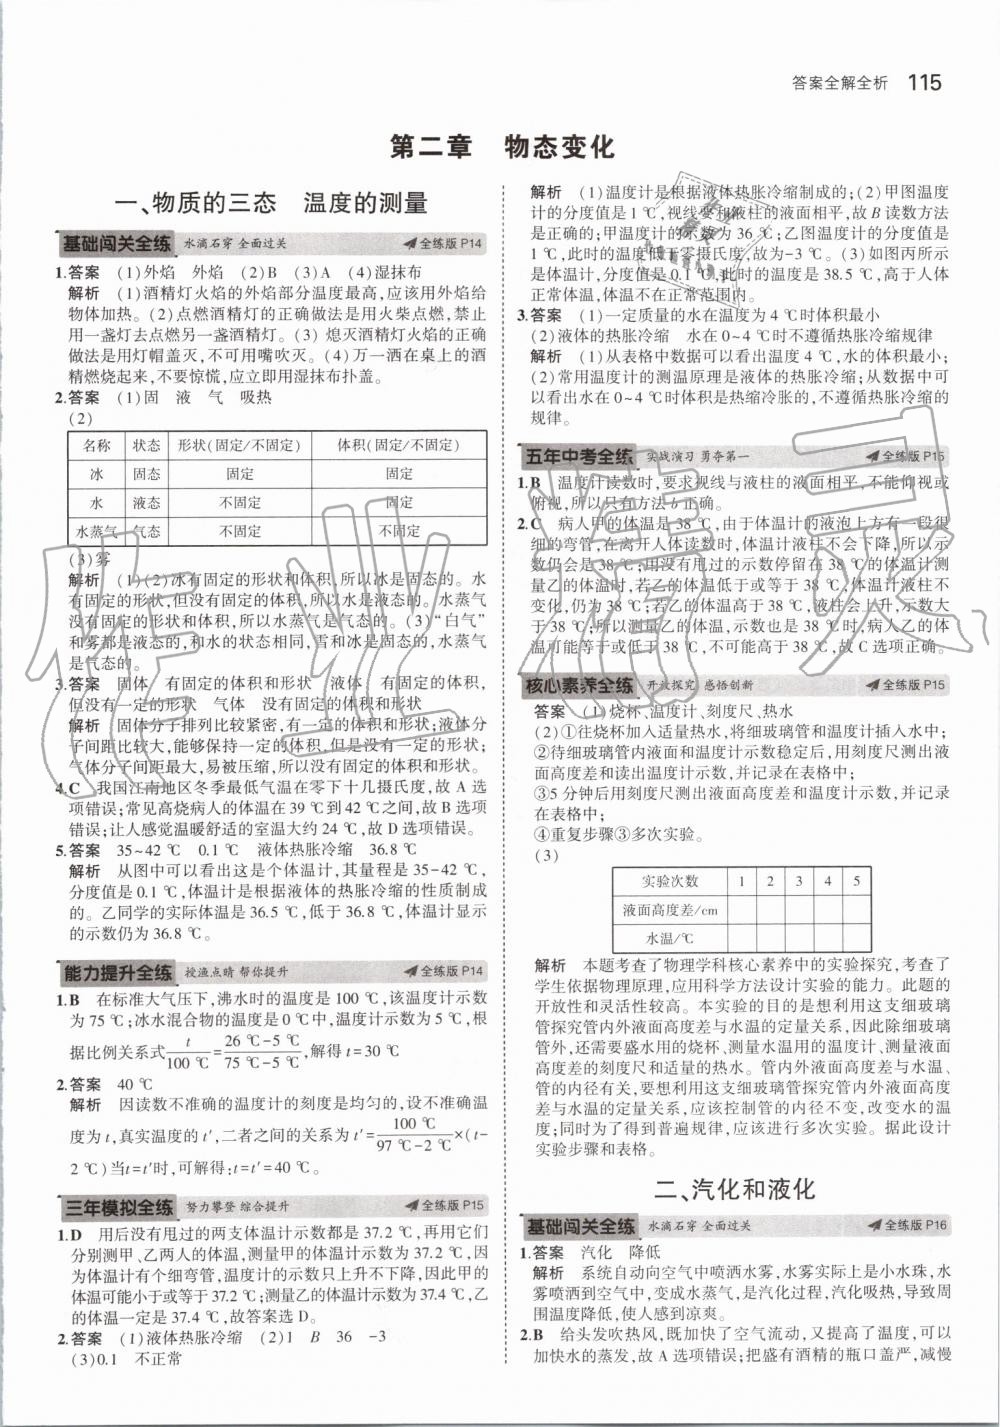 答案全解全析 115
第二章 物态变化
一、物质的三态 温度的测量
基础闯关全练 水滴石穿 全面过关 全练版 P14
1.答案 (1)外焰 外焰 (2)B (3)A (4)湿抹布
解析 (1)酒精灯火焰的外焰部分温度最高,应该用外焰给
物体加热。(2)点燃酒精灯的正确做法是用火柴点燃,禁止
用一盏灯去点燃另一盏酒精灯。(3) 熄灭酒精灯火焰的正确
做法是用灯帽盖灭,不可用嘴吹灭。(4)万一洒在桌上的酒
精燃烧起来,不要惊慌,应立即用湿抹布扑盖。
2.答案 (1)固 液 气 吸热
(2)
名称 状态 形状(固定/不固定) 体积(固定/不固定)
冰 固态 固定 固定
水 液态 不固定 固定
水蒸气 气态 不固定 不固定
(3)雾
解析 (1)(2)冰有固定的形状和体积,所以冰是固态的。水
有固定的形状,但没有固定的体积,所以水是液态的。水蒸气
没有固定的形状和体积,所以水蒸气是气态的。(3)“白气”
和雾都是液态的,和水的状态相同,雪和冰是固态的,水蒸气
是气态的。
3.答案 固体 有固定的体积和形状 液体 有固定的体积,
但没有一定的形状 气体 没有固定的体积和形状
解析 固体分子排列比较紧密,有一定的体积和形状;液体分
子间距比较大,能够保持一定的体积,但是没有一定的形状;
气体分子间距最大,易被压缩,所以没有固定的体积和形状。
4.C 我国江南地区冬季最低气温在零下十几摄氏度,故 A 选
项错误;常见高烧病人的体温在 39 ℃到 42 ℃之间,故 B 选项
错误;让人感觉温暖舒适的室温大约 24 ℃,故 D 选项错误。
5.答案 35~42 ℃ 0.1 ℃ 液体热胀冷缩 36.8 ℃
解析 从图中可以看出这是个体温计,其量程是 35-42 ℃,
分度值是 0.1 ℃,体温计是根据液体的热胀冷缩的性质制成
的。乙同学的实际体温是 36.5 ℃,低于 36.8 ℃,体温计显示
的示数仍为 36.8 ℃。
能力提升全练 授渔点睛 帮你提升 全练版 P14
1.B 在标准大气压下,沸水时的温度是 100 ℃,该温度计示数
为 75 ℃;冰水混合物的温度是 0 ℃中,温度计示数为 5 ℃,根
据比例关系式 t/100 ℃=(26 ℃-5 ℃)/(75 ℃-5 ℃),解得 t=30 ℃
2.答案 40 ℃
解析 因读数不准确的温度计的刻度是均匀的,设不准确温
度为 t,真实温度的 t′,二者之间的关系为 t′=100 ℃/(97 ℃-2 ℃)×(t-
2 ℃)当 t=t′时,可解得:t=t′=40 ℃。
三年模拟全练 努力攀登 综合提升 全练版 P15
1.D 用后没有甩过的两支体温计示数都是 37.2 ℃,再用它们
分别测甲、乙两人的体温,测量甲的体温计示数为 37.2 ℃,因
为体温计有个细弯管,温度计的示数只上升不下降,因此甲的
体温可能小于或等于 37.2 ℃;测量乙的体温计示数为 37.4 ℃,乙
的体温一定是 37.4 ℃,故答案选 D。
2.答案 (1)液体热胀冷缩 (2)1 B 36 -3
(3)0.1 不正常
解析 (1)温度计是根据液体热胀冷缩制成的;(2)甲图温度
计的分度值是 1 ℃,视线要和液柱的液面相平,故 B 读数方法
是正确的;甲温度计的示数为 36 ℃;乙图温度计的分度值是
1 ℃,此时的温度低于零摄氏度,故为-3 ℃。(3)如图丙所示
是体温计,分度值是 0.1 ℃,此时的温度是 38.5 ℃,高于人体
正常体温,体温不在正常范围内。
3.答案 (1)一定质量的水在温度为 4 ℃时体积最小
(2)液体的热胀冷缩 水在 0~4 ℃时不遵循热胀冷缩规律
解析 (1)从表格中数据可以看出温度 4 ℃,水的体积最小;
(2)常用温度计的测温原理是液体的热胀冷缩;从数据中可
以看出水在 0~4 ℃时体积是热缩冷胀的,不遵循热胀冷缩的
规律。
五年中考全练 实战演习 勇夺第一 全练版 P15
1.B 温度计读数时,要求视线与液柱的液面相平,不能仰视或
俯视,所以只有方法 b 正确。
2.C 病人甲的体温是 38 ℃,由于体温计的液泡上方有一段很
细的弯管,在离开人体读数时,体温计液柱不会下降,所以示
数仍会是 38 ℃;用没有甩过的示数停留在 38 ℃的体温计测
量乙的体温时,若乙的体温低于或等于 38 ℃,体温计液柱不
变化,仍为 38 ℃;若乙的体温高于 38 ℃,液柱会上升,示数大
于 38 ℃;所以测量乙的体温,示数也是 38 ℃时,病人乙的体
温可能等于或低于 38 ℃,不可能高于 38 ℃,故 C 选项正确。
核心素养全练 开放探究 感悟创新 全练版 P15
答案 (1)烧杯、温度计、刻度尺、热水
(2)①往烧杯加入适量热水,将细玻璃管和温度计插入水中;
②待细玻璃管内液面和温度计示数稳定后,用刻度尺测出液
面高度差和读出温度计示数,并记录在表格中;
③5 分钟后用刻度尺测出液面高度差和温度计示数,并记录
在表格中;
④重复步骤③多次实验。
(3)
实验次数 1 2 3 4 5
液面高度差/cm
水温/℃
解析 本题考查了物理学科核心素养中的实验探究,考查了
学生依据物理原理,应用科学方法设计实验的能力。此题的
开放性和灵活性较高。本实验的目的是想利用这支细玻璃
管探究管内外液面高度差与水温的定量关系,因此除细玻璃
管外,还需要盛水用的烧杯、测量水温用的温度计、测量液面
高度差的刻度尺和适量的热水。管内外液面高度差与水温、
管的内径有关,要想利用这支细玻璃管探究管内外液面高度
差与水温的定量关系,应该控制管的内径不变,改变水的温
度;同时为了得到普遍规律,应该进行多次实验。据此设计
实验步骤和表格。
二、汽化和液化
基础闯关全练 水滴石穿 全面过关 全练版 P16
1.答案 汽化 降低
解析 系统自动向空气中喷洒水雾,水雾实际上是小水珠,水
雾喷洒到空气中,变成水蒸气,是汽化过程,汽化吸热,导致周
围温度降低,使人感到凉爽。
2.B 给头发吹热风,既加快了空气流动,又提高了温度,可以
加快水的蒸发,故 A 选项错误;把盛有酒精的瓶口盖严,减慢